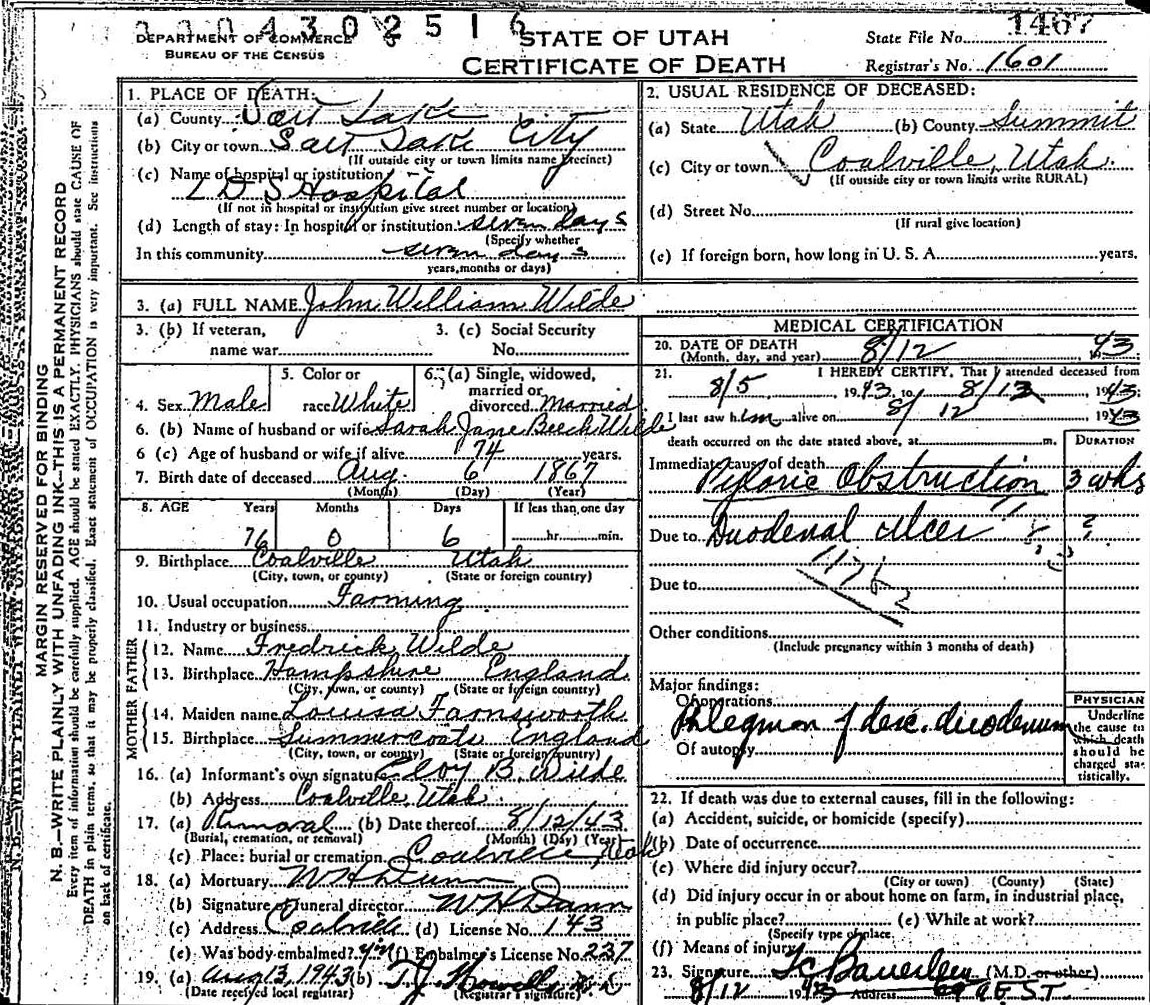 2 2 0 4 3 0 2 5 1 6
DEPARTMENT OF COMMERCE
BUREAU OF THE CENSUS
STATE OF UTAH
CERTIFICATE OF DEATH
State File No. 1467
Registrar's No. 1601
MARGIN RESERVED FOR BINDING
N. B.—WRITE PLAINLY WITH UNFADING INK—THIS IS A PERMANENT RECORD
Every item of information should be carefully supplied. AGE should be stated EXACTLY. PHYSICIANS should state CAUSE OF
DEATH in plain terms, so that it may be properly classified. Exact statement of OCCUPATION is very important. See instructions
on back of certificate.
1. PLACE OF DEATH:
(a) County Salt Lake
(b) City or town Salt Lake City
(If outside city or town limits name precinct)
(c) Name of hospital or institution
L D S Hospital
(If not in hospital or institution give street number or location)
(d) Length of stay: In hospital or institution seven days
(Specify whether
In this community seven days
years, months or days)
2. USUAL RESIDENCE OF DECEASED:
(a) State Utah (b) County Summit
(c) City or town Coalville, Utah.
(If outside city or town limits write RURAL)
(d) Street No.
(If rural give location)
(e) If foreign born, how long in U. S. A. years.
3. (a) FULL NAME John William Wilde
3. (b) If veteran,
name war
3. (c) Social Security
No.
4. Sex Male
5. Color or
race White
6. (a) Single, widowed,
married or
divorced Married
6. (b) Name of husband or wife Sarah Jane Beech Wilde
6 (c) Age of husband or wife if alive 74 years.
7. Birth date of deceased Aug. 6 1867
(Month) (Day) (Year)
8. AGE Years Months Days If less than one day
76 0 6 hr. min.
9. Birthplace Coalville Utah
(City, town, or county) (State or foreign country)
10. Usual occupation Farming
11. Industry or business
FATHER
12. Name Fredrick Wilde
13. Birthplace Hampshire England
(City, town, or county) (State or foreign country)
MOTHER
14. Maiden name Louisa Farnsworth
15. Birthplace Summercoats England
(City, town, or county) (State or foreign country)
16. (a) Informant's own signature Eloy B. Wilde
(b) Address Coalville, Utah.
17. (a) Removal (b) Date thereof 8/12/43
(Burial, cremation, or removal) (Month) (Day) (Year)
(c) Place: burial or cremation Coalville Utah
18. (a) Mortuary W H Dunn
(b) Signature of funeral director W H Dunn
(c) Address Coalville (d) License No. 143
(e) Was body embalmed? yes (f) Embalmer's License No. 237
19. (a) Aug 13, 1943 (b) T. J. Howells
(Date received local registrar) (Registrar's signature)
MEDICAL CERTIFICATION
20. DATE OF DEATH
(Month, day, and year) 8/12, 43
21. I HEREBY CERTIFY, That I attended deceased from
8/5 1943, to 8/12 1943;
I last saw him alive on 8/12 1943
death occurred on the date stated above, at m.
DURATION
Immediate cause of death
Pyloric Obstruction 3 wks
Due to Duodenal ulcer ?
Due to
Other conditions
(Include pregnancy within 3 months of death)
Major findings:
Of operations
Phlegmon of desc. duodenum
Of autopsy
PHYSICIAN
Underline
the cause to
which death
should be
charged sta-
tistically.
22. If death was due to external causes, fill in the following:
(a) Accident, suicide, or homicide (specify)
(b) Date of occurrence
(c) Where did injury occur?
(City or town) (County) (State)
(d) Did injury occur in or about home on farm, in industrial place,
in public place? (e) While at work?
(Specify type of place.
(f) Means of injury
23. Signature (M.D. or other)
8/12 1943 Address E S T